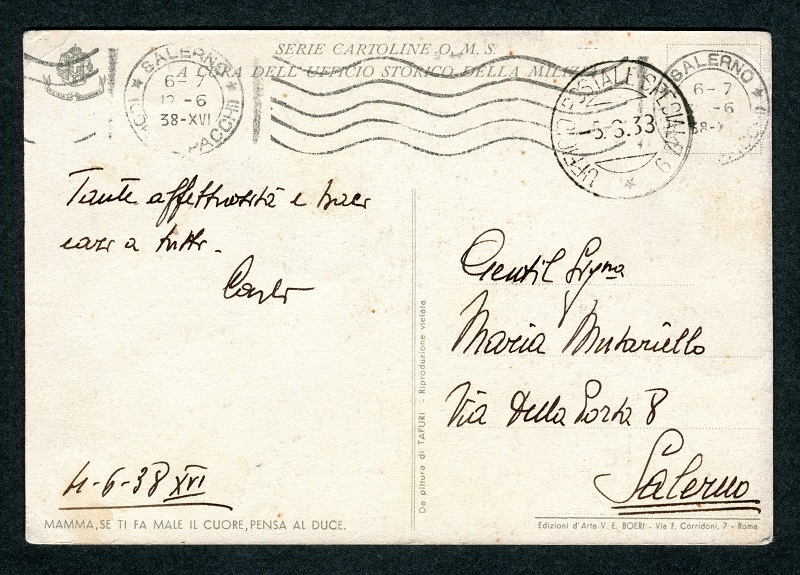 SERIE CARTOLINE O. M. S.
A CURA DELL'UFFICIO STORICO DELLA MILIZIA
SALERNO
6-7
12-6
38-XVI
PACCHI
UFFICIO POSTALE SPECIALE 9
-5.6.33
SALERNO
6-7
-6
38-X
Tante affettuosità e baci
cari a tutti.
Carlo
4-6-38 XVI
MAMMA, SE TI FA MALE IL CUORE, PENSA AL DUCE.
Da pittura di TAFURI - Riproduzione vietata
Gentil Sigma
Maria Mutariello
Via Della Porta 8
Salerno
Edizioni d'Arte V. E. BOERI - Via F. Corridoni, 7 - Roma